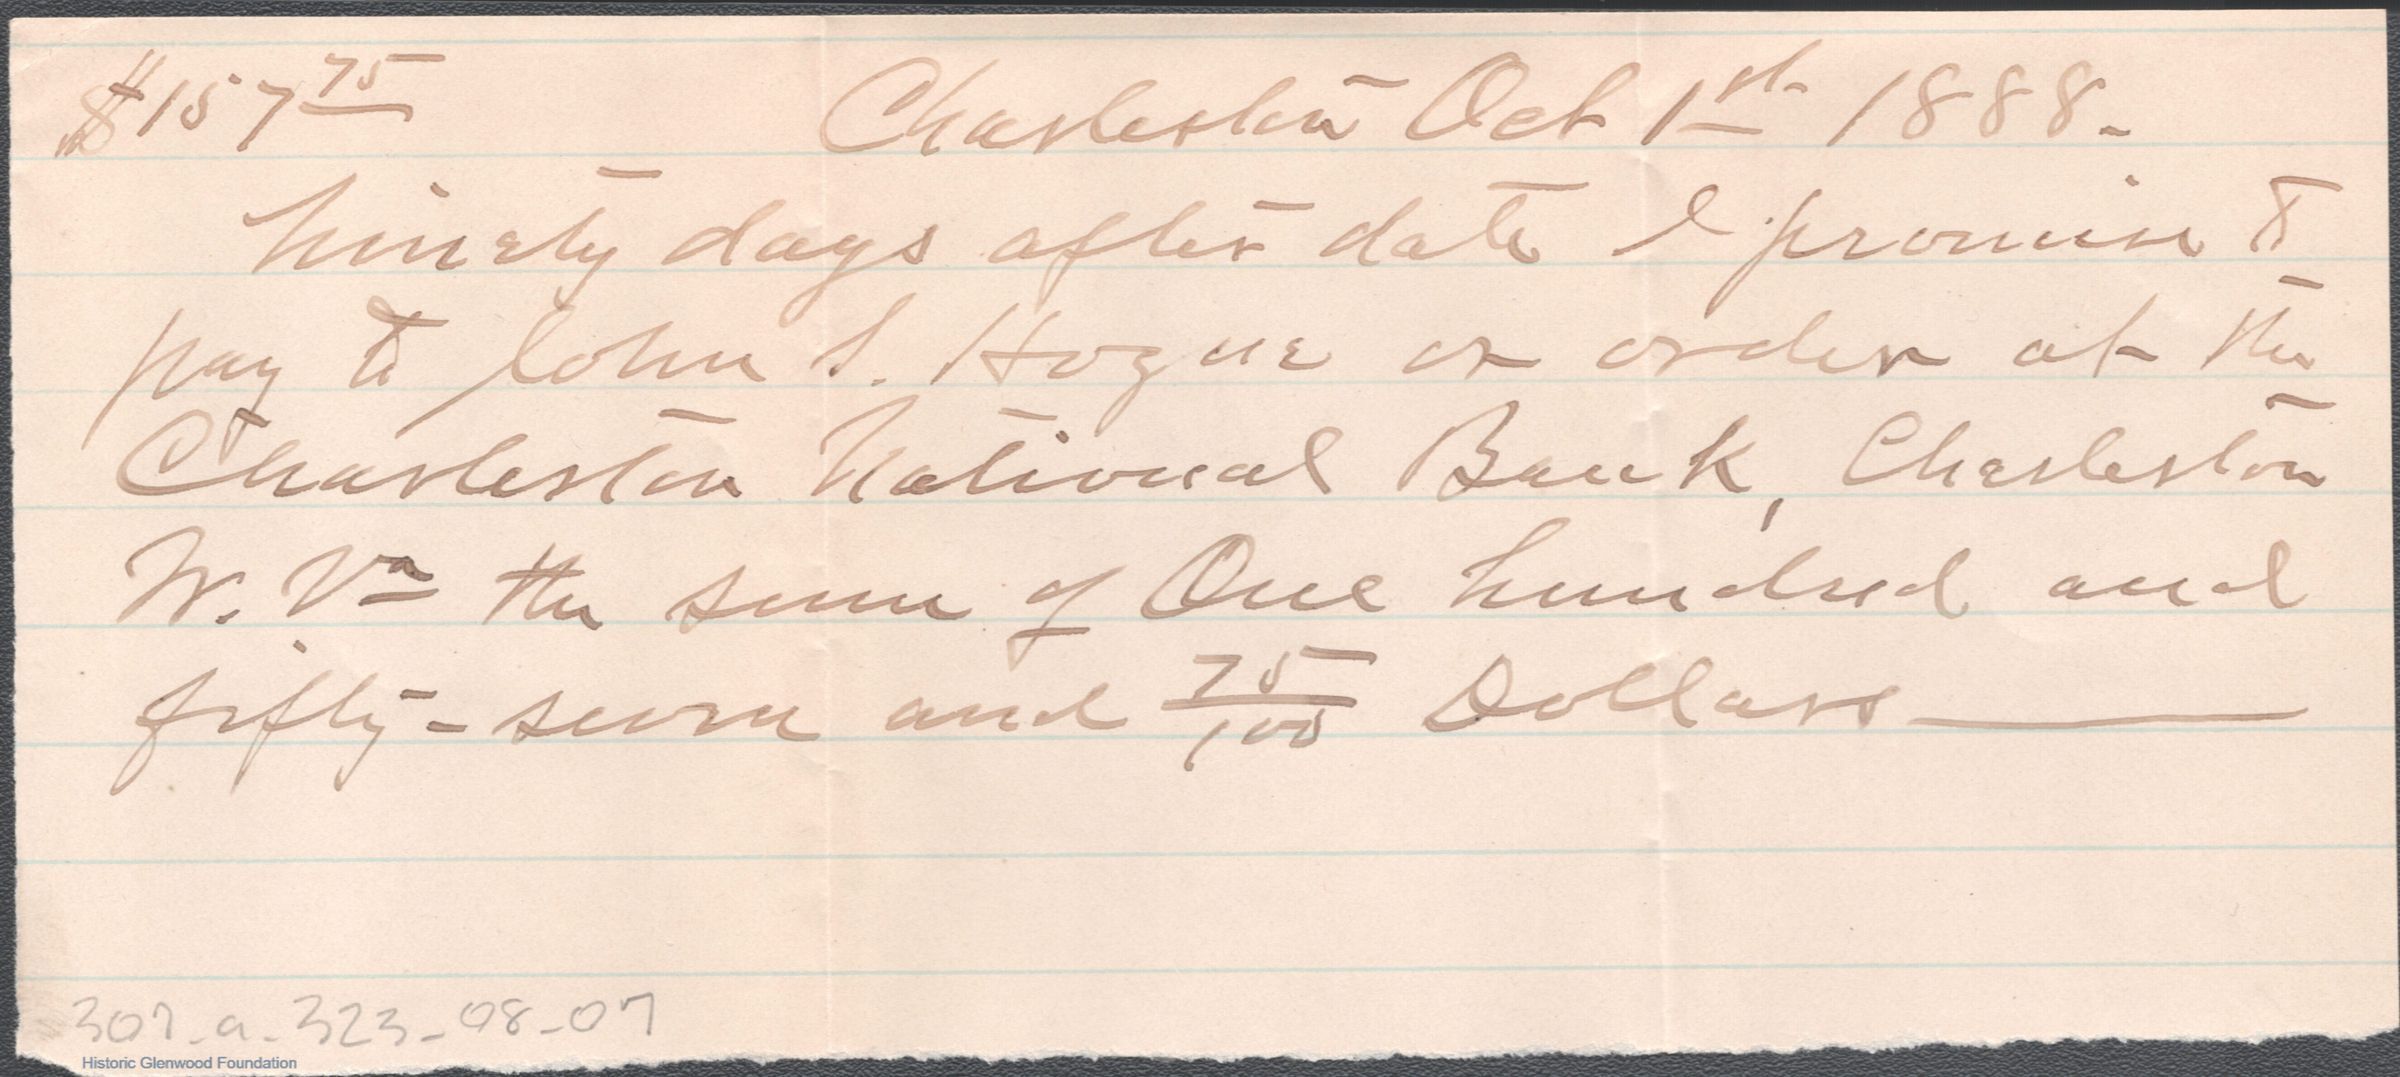 $157 75 Charleston Oct 1st 1888.
Ninety days after date I promise to
pay to John S. Hogue or order at the
Charleston National Bank, Charleston
W. Va the sum of One hundred and
fifty-seven and 75/100 Dollars
307-a-323-08-07
Historic Glenwood Foundation